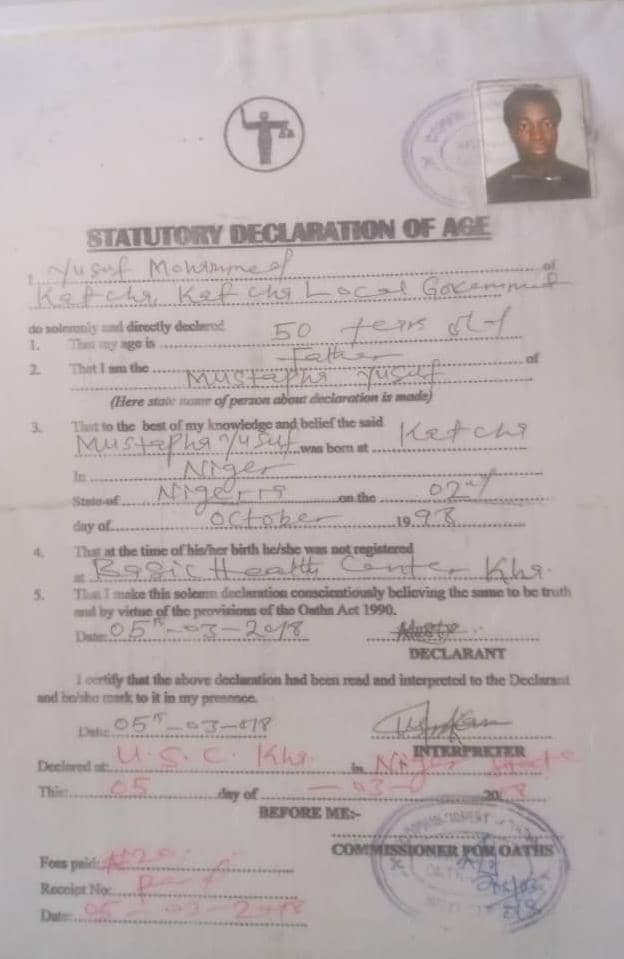 STATUTORY DECLARATION OF AGE
I, Yusuf Mohammed of
Katcha, Katcha Local Government
do solemnly and directly declared
1. That my age is 50 years old
2. That I am the Father of
Mustapha Yusuf
(Here state name of person about declaration is made)
3. That to the best of my knowledge and belief the said
Mustapha Yusuf was born at Katcha
In Niger
State of Nigeria on the 02nd
day of October 1998
4. That at the time of his/her birth he/she was not registered
at Basic Health Center Kha.
5. That I make this solemn declaration conscientiously believing the same to be truth
and by virtue of the provisions of the Oaths Act 1990.
Date: 05th-03-2018
DECLARANT
I certify that the above declaration had been read and interpreted to the Declarant
and he/she mark to it in my presence.
Date: 05th-03-018
INTERPRETER
Declared at: U.S.C. Kha. in Niger State
This 05 day of -03- 2018
BEFORE ME:-
COMMISSIONER FOR OATHS
Fees paid:
Receipt No:
Date: 05-03-2018